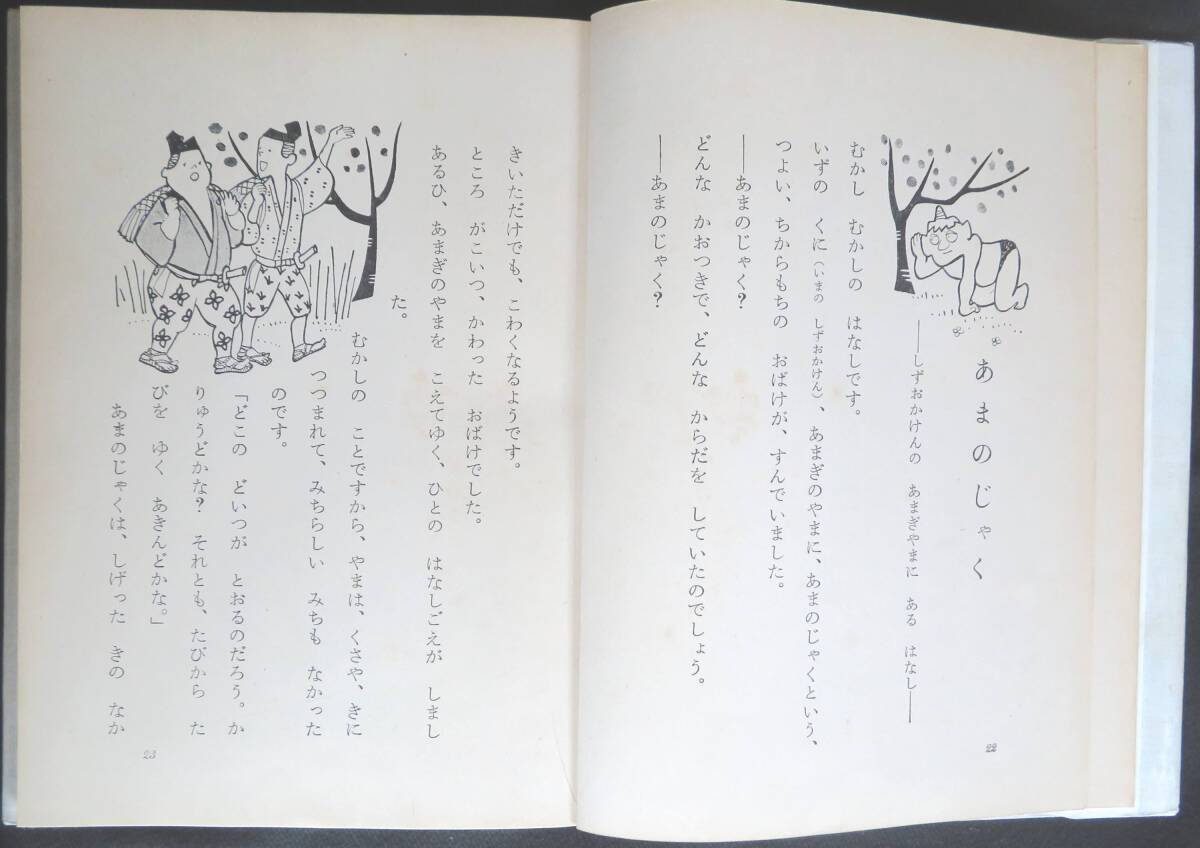 あまのじゃく
――しずおかけんの　あまぎやまに　ある　はなし――
むかし　むかしの　はなしです。
いずの　くに（いまの　しずおかけん）、あまぎのやまに、あまのじゃくという、
つよい、ちからもちの　おばけが、すんでいました。
――あまのじゃく？
どんな　かおつきで、どんな　からだを　していたのでしょう。
――あまのじゃく？
22
きいただけでも、こわくなるようです。
ところ　がこいつ、かわった　おばけでした。
あるひ、あまぎのやまを　こえてゆく、ひとの　はなしごえが　しまし
た。
むかしの　ことですから、やまは、くさや、きに
つつまれて、みちらしい　みちも　なかった
のです。
「どこの　どいつが　とおるのだろう。か
りゅうどかな？　それとも、たびから　た
びを　ゆく　あきんどかな。」
あまのじゃくは、しげった　きの　なか
23